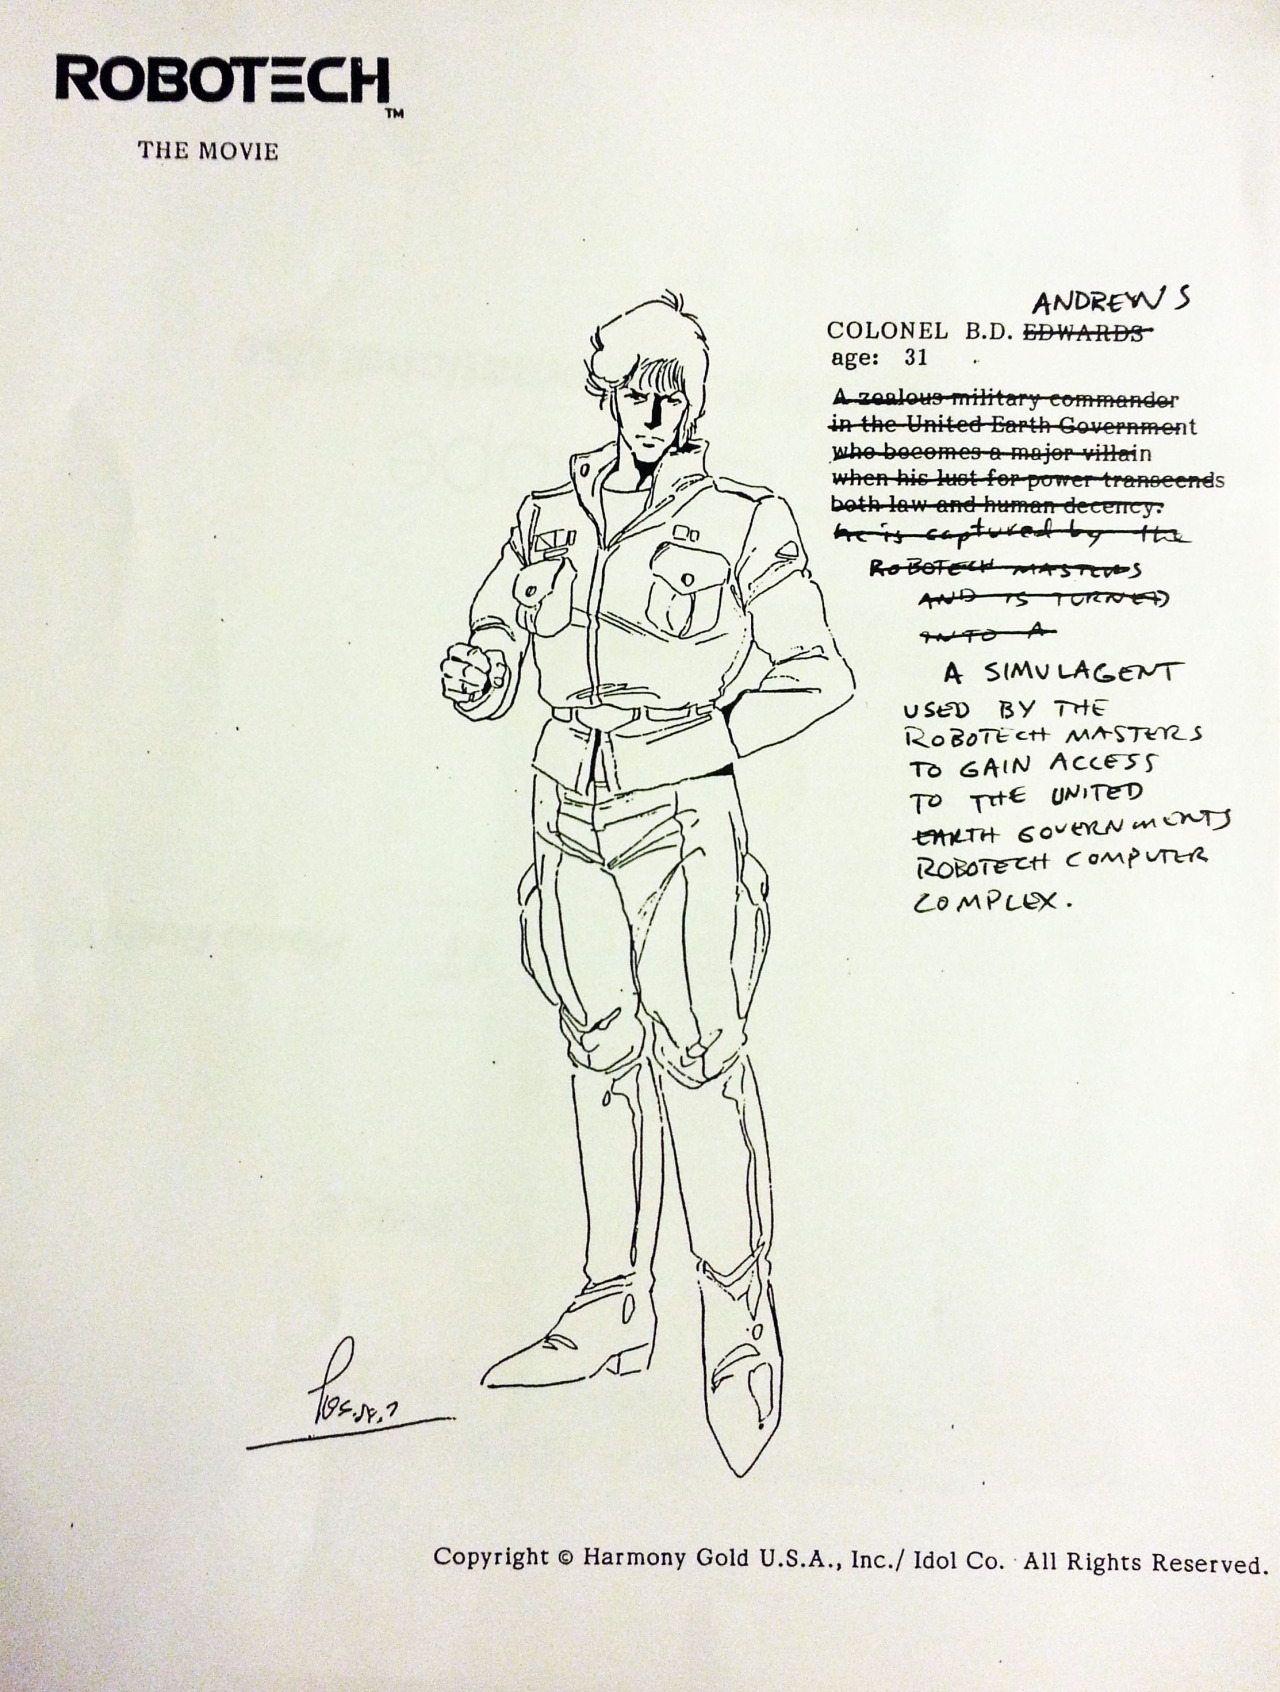 ROBOTECH™
THE MOVIE
ANDREWS
COLONEL B.D. EDWARDS
age: 31
A zealous military commander
in the United Earth Government
who becomes a major villain
when his lust for power transcends
both law and human decency.
he is captured by the
ROBOTECH MASTERS
AND IS TURNED
INTO A
A SIMULAGENT
USED BY THE
ROBOTECH MASTERS
TO GAIN ACCESS
TO THE UNITED
EARTH GOVERNMENTS
ROBOTECH COMPUTER
COMPLEX.
Copyright © Harmony Gold U.S.A., Inc./ Idol Co. All Rights Reserved.